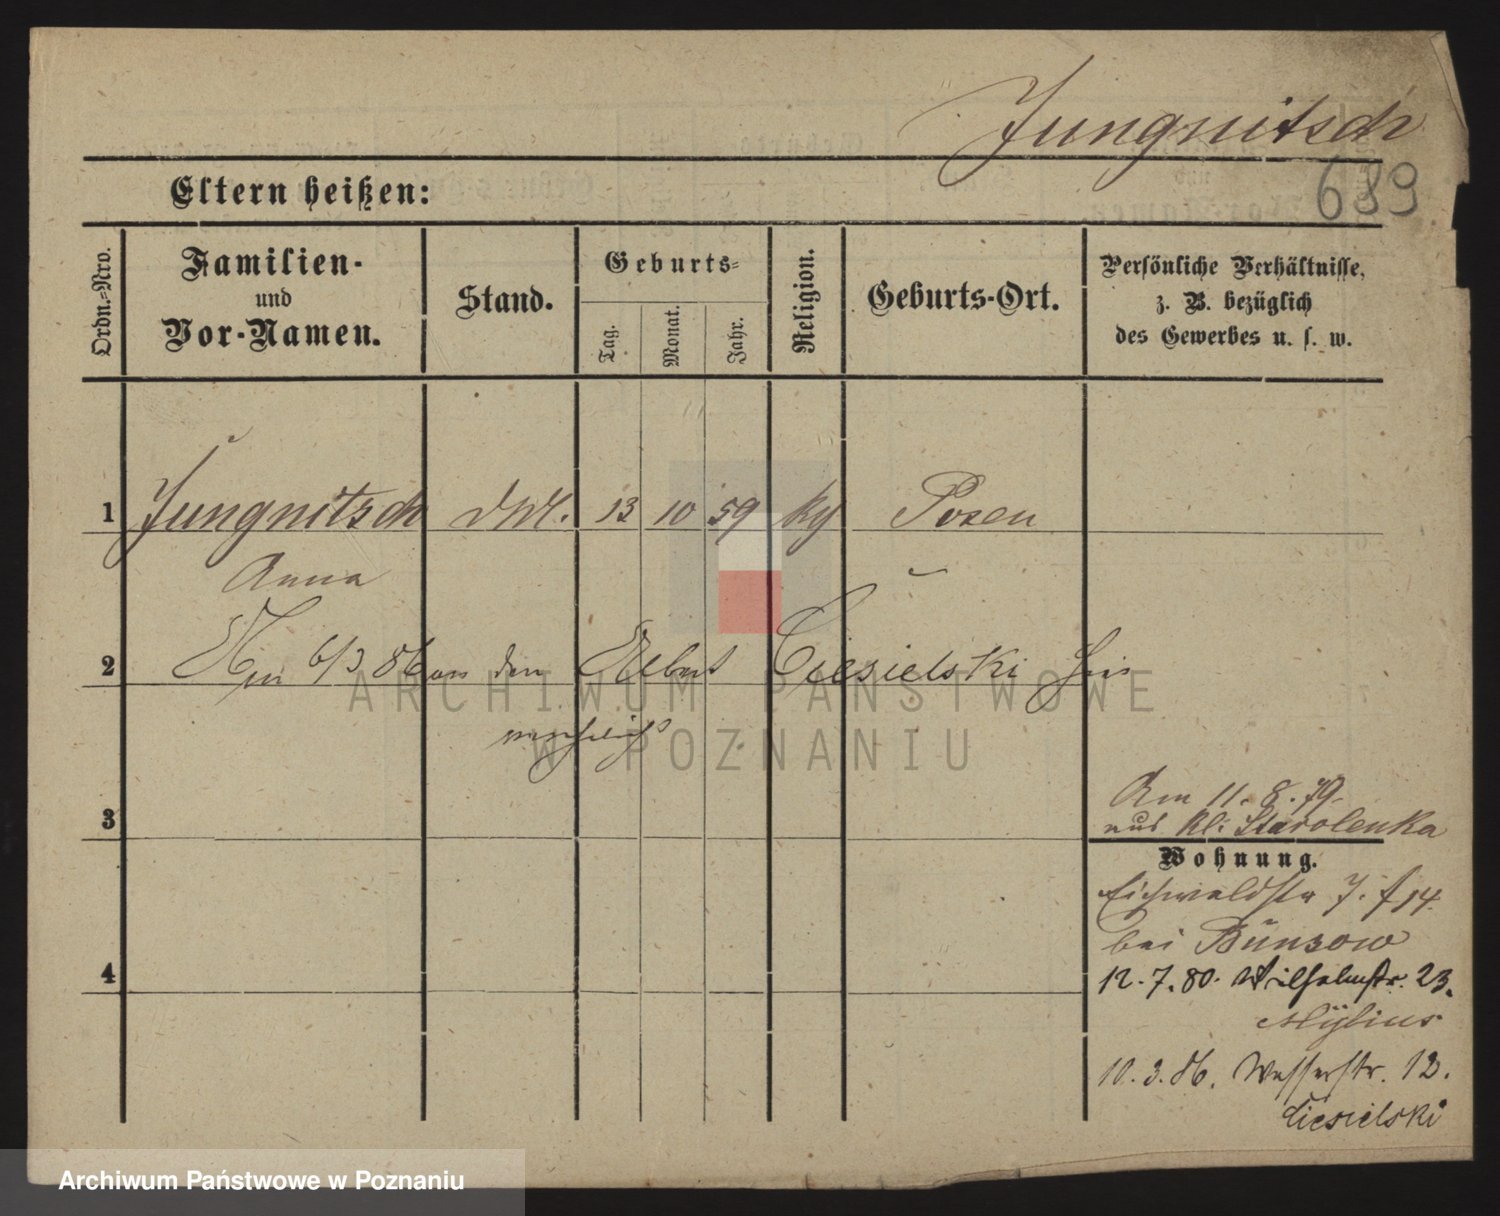 Jungnitsch
689
Eltern heißen:
Ordn.-Nro.
Familien-
und
Vor-Namen.
Stand.
Geburts-
Tag.
Monat.
Jahr.
Religion.
Geburts-Ort.
Persönliche Verhältnisse,
z. B. bezüglich
des Gewerbes u. s. w.
1 Jungnitsch 13 10 59 Posen
Anna
2 6/3 86 an den Ciesielski hier
3
Am 11. 8. 79.
aus Kl. Starolenka
Wohnung.
Eichwaldstr 7. f 14.
bei Bünsow
4
12. 7. 80. Wilhelmstr. 23.
Mylius
10. 3. 86. Wasserstr. 12.
Ciesielski
ARCHIWUM PAŃSTWOWE
W POZNANIU
Archiwum Państwowe w Poznaniu